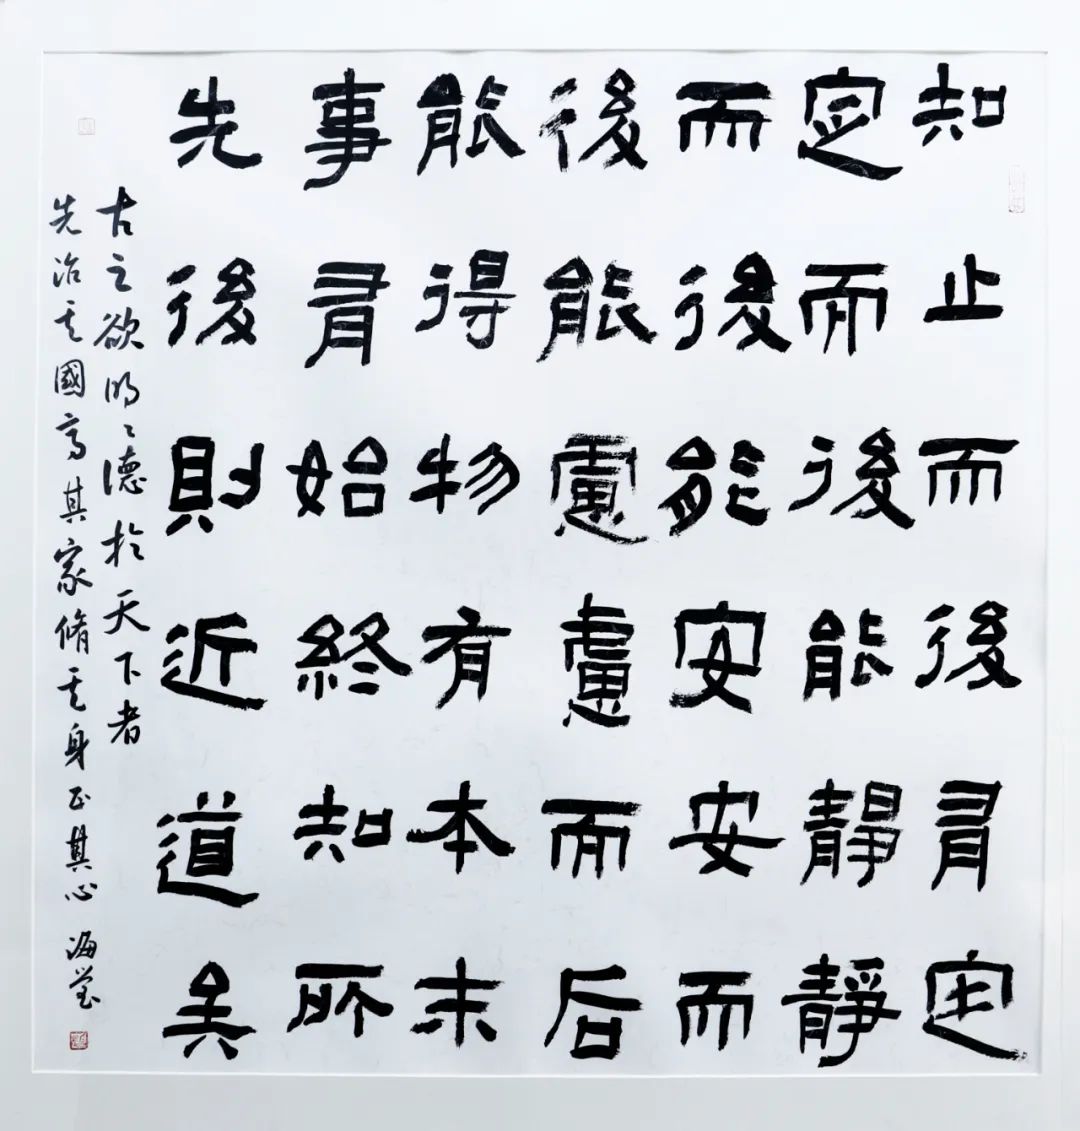 知止而後有定
定而後能靜靜
而後能安安而
後能慮慮而后
能得物有本末
事有始終知所
先後則近道矣
古之欲明々德於天下者
先治其國齊其家脩其身正其心 海莹